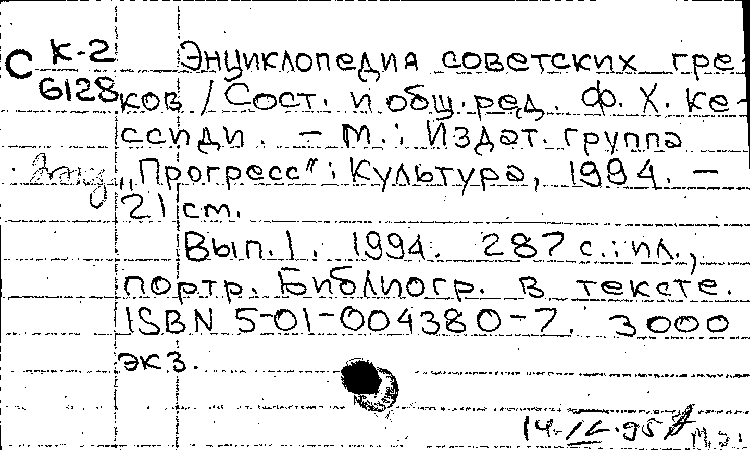 С К-2 Энциклопедия советских гре-
6128 ков / Сост. и общ. ред. Ф. Х. Ке-
ссиди. – М.: Издат. группа
„Прогресс“: Культура, 1994. –
21 см.
Вып. 1. 1994. 287 с.: ил.,
портр. Библиогр. в тексте.
ISBN 5-01-004380-7. 3000
экз.
14.